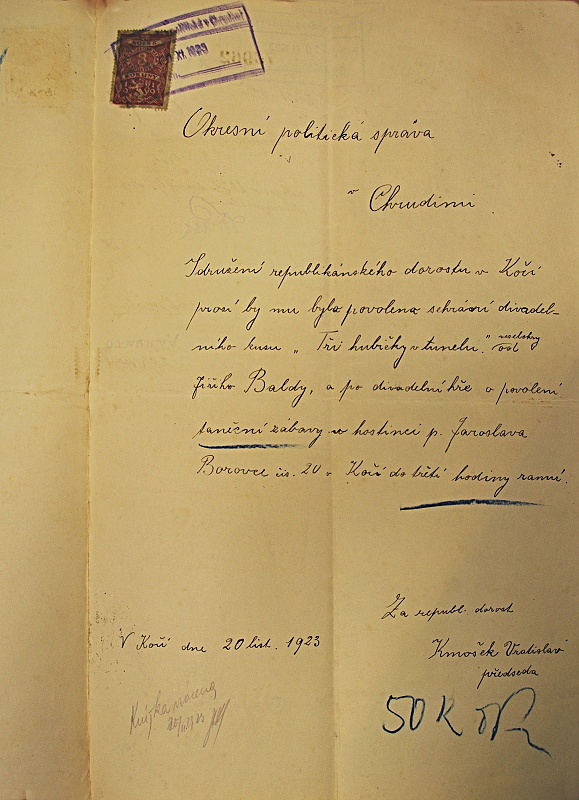 KOLEK
8
KORUNY
XI. 1923
Okresní politická správa
v
Chrudimi
Sdružení republikánského dorostu v Kočí
prosí by mu byla povolena sehrání divadel-
ního kusu „Tři hubičky v tunelu." veselohry od
Jiřího Baldy, a po divadelní hře o povolení
taneční zábavy v hostinci p. Jaroslava
Borovce čís. 20 v Kočí do třetí hodiny ranní.
Za republ. dorost
V Kočí dne 20 list. 1923
Kmošek Vratislav
předseda
50 K